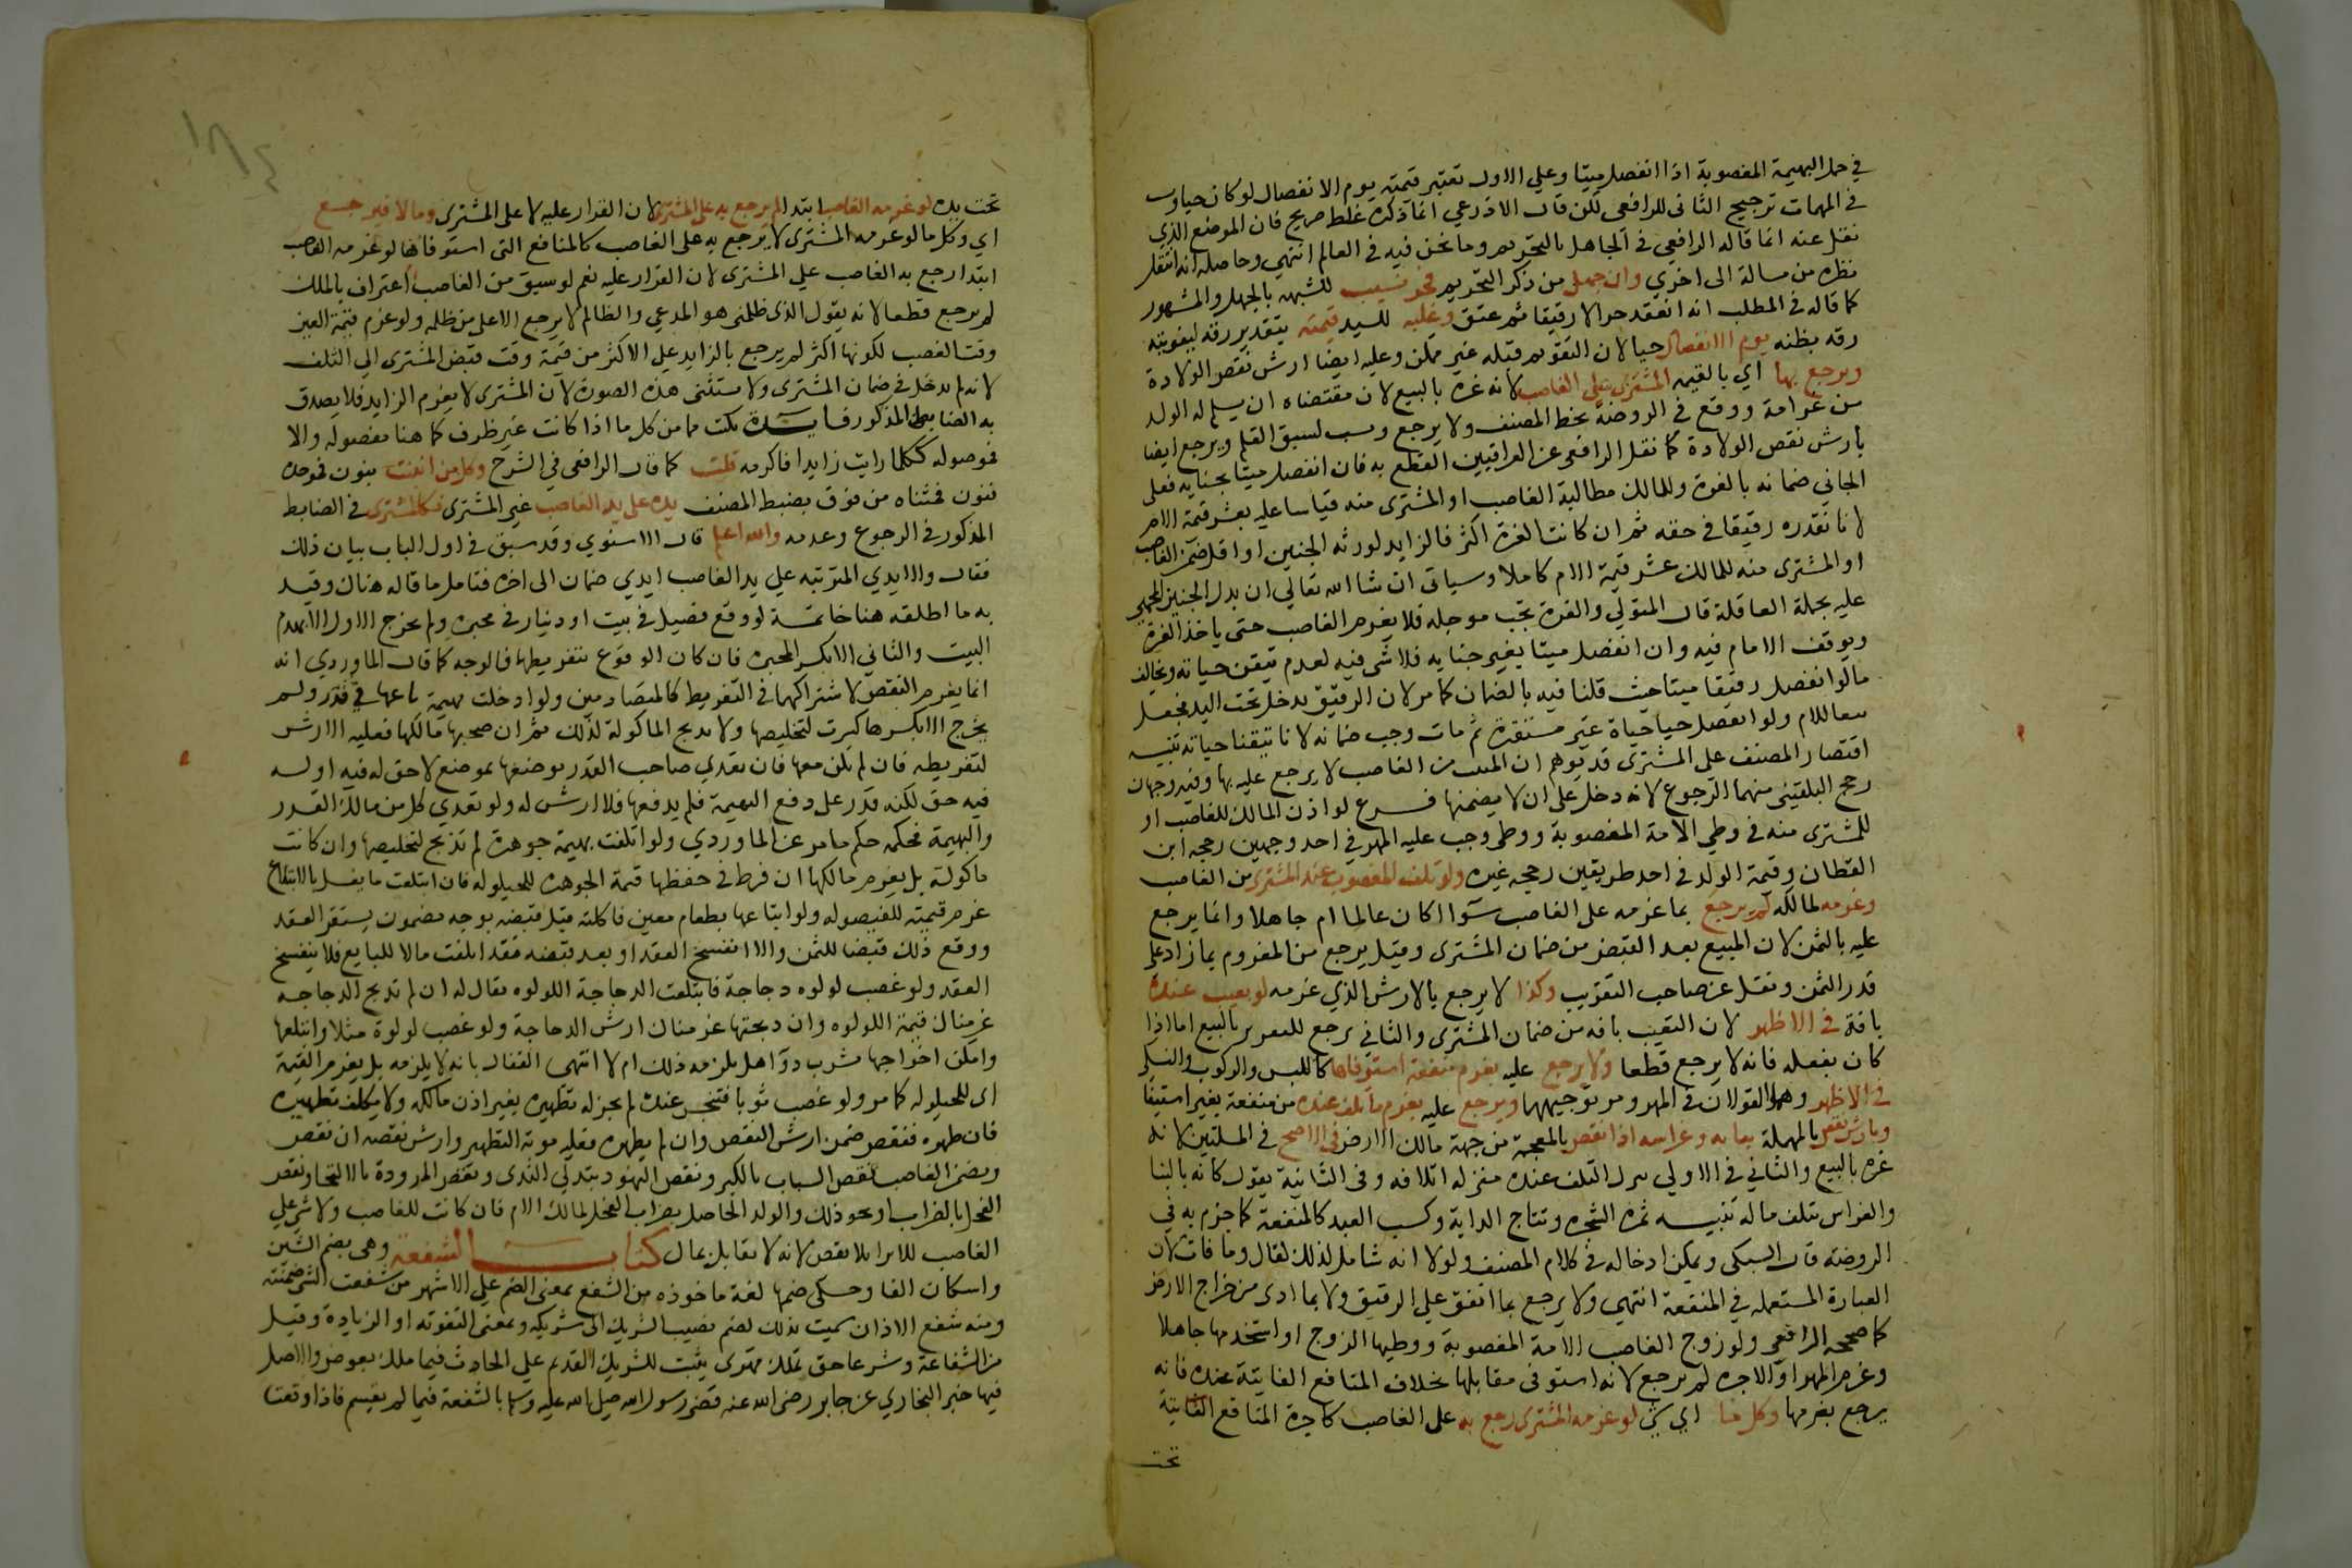 في حمل البهيمة المغصوبة اذا انفصل ميتا وعلي الاول تعتبر قيمته يوم الانفصال لو كان حيا و
في المهمات ترجيح الثاني للرافعي لكن قال الاذرعي انما ذكره غلط صريح فان الموضع الذي
نقل عنه انما قاله الرافعي في الجاهل بالتحريم وما نحن فيه في العالم انتهي وحاصله انه انتقل
نظره من مسالة الى اخري وان جهل من ذكر التحريم فحر نسيب للشبهه بالجهل والمشهور
كما قاله في المطلب انه انعقد حرا لا رقيقا ثم عتق وعليه للسيد قيمته بتقدير رقه لتفويته
رقه بظنه يوم الانفصال حيا لان التقويم قبله غير ممكن وعليه ايضا ارش نقص الولادة
ويرجع بها اي بالقيمه المشترى على الغاصب لانه غره بالبيع لان مقتضاه ان يسلم له الولد
من غرامة ووقع في الروضة بخط المصنف ولا يرجع ونسب لسبق القلم ويرجع ايضا
بارش نقص الولادة كما نقل الرافعي عن العراقيين القطع به فان انفصل ميتا بجنايه فعلى
الجاني ضمانه بالغرة وللمالك مطالبة الغاصب او المشترى منه قياسا عليه بعشر قيمة الام
لانا نقدره رقيقا في حقه ثم ان كانت الغرة اكثر فالزايد لورثه الجنين او اقل ضمن الغاصب
او المشترى منه للمالك عشر قيمة الام كاملا وسياتي ان شا الله تعالي ان بدل الجنين المجني
عليه بحملة العاقلة قال المتولي والغرة تجب موجله فلا يغرم الغاصب حتى ياخذ الغرة
وتوقف الامام فيه وان انفصل ميتا بغير جنايه فلا شى فيه لعدم تيقن حياته ويخالف
ما لو انفصل رقيقا ميتا حيث قلنا فيه بالضمان كما مر لان الرقيق يدخل تحت اليد فجعل
تبعا للام ولو انفصل حيا حياة غير مستقرة ثم مات وجب ضمانه لانا تيقنا حياته تنبيه
اقتصار المصنف على المشترى قد يوهم ان المتهب من الغاصب لا يرجع عليه بها وفيه وجهان
رجح البلقيني منهما الرجوع لانه دخل على ان لا يضمنها فرع لو اذن المالك للغاصب او
للمشترى منه في وطي الامة المغصوبة ووطى وجب عليه المهر في احد وجهين رجحه ابن
القطان وقيمة الولد في احد طريقين رجحه غيره ولو تلف المغصوب عند المشترى من الغاصب
وغرمه لمالكه لم يرجع بما غرمه على الغاصب سوا اكان عالما ام جاهلا وانما يرجع
عليه بالثمن لان المبيع بعد القبض من ضمان المشترى وقيل يرجع من المغروم بما زاد على
قدر الثمن ونقل عن صاحب التقريب وكذا لا يرجع بالارش الذي غرمه لو تعيب عنده
بافة في الاظهر لان التعيب بافه من ضمان المشترى والثاني يرجع للتغرير بالبيع اما اذا
كان بفعله فانه لا يرجع قطعا ولا يرجع عليه بغرم منفعة استوفاها كاللبس والركوب والسكني
في الاظهر وهما القولان في المهر ومر توجيههما ويرجع عليه بغرم ما تلف عنده من منفعة بغير استيفا
وبارش نقص بالمهملة بنايه وغراسه اذا نقض بالمعجمة من جهة مالك الارض في الاصح في المسلتين لانه
غره بالبيع والثاني في الاولي ينزل التلف عنده منزله اتلافه وفى الثانية يقول كانه بالبنا
والغراس يتلف ماله تنبيه ثمرة الشجره ونتاج الدابة وكسب العبد كالمنفعة كما جزم به في
الروضة قال السبكى ويمكن ادخاله في كلام المصنف ولولا انه شامل لذلك لقال وما فات لان
العبارة المستعمله في المنفعة انتهي ولا يرجع بما انفق علي الرقيق ولا بما ادى من خراج الارض
كما صححه الرافعي ولو زوج الغاصب الامة المغصوبة ووطيها الزوج او استخدمها جاهلا
وغرم المهر او الاجره لم يرجع لانه استوفى مقابلها بخلاف المنافع الفايتة عنده فانه
يرجع بغرمها وكل ما اي شى لو غرمه المشترى رجع به على الغاصب كاجرة المنافع الفايتة
تحت
تحت يده لو غرمه الغاصب ابتدا لم يرجع به على المشترى لان القرار عليه لا على المشترى وما لا فيرجع
اي وكل ما لو غرمه المشترى لا يرجع به على الغاصب كالمنافع التى استوفاها لو غرمه الغاصب
ابتدا رجع به الغاصب علي المشترى لان القرار عليه نعم لو سبق من الغاصب اعتراف بالملك
لم يرجع قطعا لانه يقول الذى ظلمنى هو المدعي والظالم لا يرجع الا على من ظلمه ولو غرم قيمة العين
وقت الغصب لكونها اكثر لم يرجع بالزايد علي الاكثر من قيمة وقت قبض المشترى الي التلف
لانه لم يدخل في ضمان المشترى ولا يستثنى هذه الصورة لان المشترى لا يغرم الزايد فلا يصدق
به الضابط المذكور فايدة تكتب ما من كل ما اذا كانت غير ظرف كما هنا مفصوله والا
فموصوله ككلما رايت زايدا فاكرمه قلت كما قال الرافعي في الشرح وكل من انبنت بنون فموحده
فنون فمثناه من فوق بضبط المصنف يده على يد الغاصب غير المشترى فكالمشترى في الضابط
المذكور في الرجوع وعدمه والله اعلم قال الاسنوي وقد سبق في اول الباب بيان ذلك
فقال والايدي المترتبه علي يد الغاصب ايدي ضمان الى اخره فتامل ما قاله هناك وقيد
به ما اطلقه هنا خاتمة لو وقع فصيل في بيت او دينار في محبره ولم يخرج الاول الا بهدم
البيت والثاني الا بكسر المحبره فان كان الوقوع بتفريطها فالوجه كما قال الماوردي انه
انما يغرم النقص لاشتراكهما في التفريط كالمتصادمين ولو ادخلت بهيمة راسها في قدر ولم
يخرج الا بكسرها كسرت لتخليصها ولا تذبح الماكولة لذلك ثم ان صحبها مالكها فعليه الارش
لتفريطه فان لم يكن معها فان تعدي صاحب القدر بوضعها بموضع لا حق له فيه او له
فيه حق لكنه قدر على دفع البهيمة فلم يدفعها فلا ارش له ولو تعدي كل من مالك القدر
والبهيمة فحكمه حكم ما مر عن الماوردي ولو ابتلعت بهيمة جوهرة لم تذبح لتخليصها وان كانت
ماكولة بل يغرم مالكها ان فرط في حفظها قيمة الجوهره للحيلوله فان ابتلعت ما يفسد بالابتلاع
غرم قيمته للفيصوله ولو ابتاعها بطعام معين فاكلته قبل قبضه بوجه مضمون يستقر العقد
ووقع ذلك قبضا للثمن والا انفسخ العقد او بعد قبضه فقد اتلفت مالا للبايع فلا ينفسخ
العقد ولو غصب لولوه دجاجة فابتلعت الدجاجة اللولوه يقال له ان لم تذبح الدجاجه
غرمناك قيمة اللولوه وان دبحتها غرمناك ارش الدجاجة ولو غصب لولوة مثلا وابتلعها
وامكن اخراجها بشرب دوا هل يلزمه ذلك ام لا انتهى القفال بانه لا يلزمه بل يغرم القيمة
اى للحيلوله كما مر ولو غصب ثوبا فتنجس عنده لم يجز له تطهيره بغير اذن مالكه ولا يكلف تطهيره
فان طهره فنقص ضمن ارش النقص وان لم يطهره فعليه مونة التطهير وارش نقصه ان نقص
ويضمن الغاصب نقص الشباب بالكبر ونقص النهود بتدلي الثدى ونقص المرودة بالالتحا ونقص
الفحل بالضراب او نحو ذلك والولد الحاصل بضراب الفحل لمالك الام فان كانت للغاصب ولا شى علي
الغاصب للانزا بلا نقص لانه لا يقابل بمال كتاب الشفعة وهى بضم الشين
واسكان الفا وحكى ضمها لغة ماخوذه من الشفع بمعنى الضم على الاشهر من شفعت الشى ضممته
ومنه شفع الاذان سميت بذلك لضم نصيب الشريك الى شريكه وبمعنى التقوية او الزيادة وقيل
من الشفاعة وشرعا حق تملك قهري يثبت للشريك القديم علي الحادث فيما ملك بعوض والاصل
فيها خبر البخاري عن جابر رضى الله عنه قضى رسول الله صلى الله عليه وسلم بالشفعة فيما لم يقسم فاذا وقعت